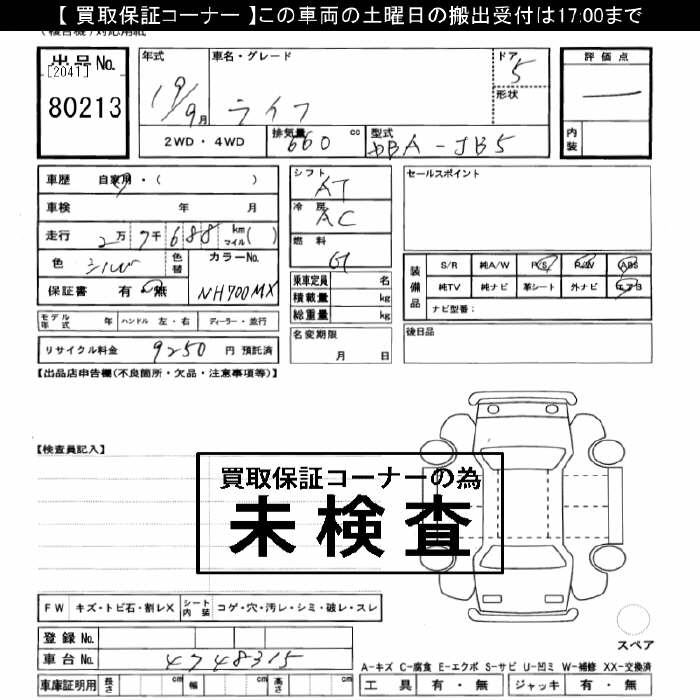 【 買取保証コーナー 】この車両の土曜日の搬出受付は17:00まで
出品No.
[2041]
80213
年式
19/9月
車名・グレード
ライフ
ドア
5
形状
評価点
内装
2WD・4WD
排気量 660 cc
型式 DBA-JB5
車歴 自家用・( )
車検 年 月
走行 2万7千688 km マイル( )
色 シルバ
色替
カラーNo.
NH700MX
保証書 有・無
シフト
AT
冷房
AC
燃料
G
乗車定員 名
積載量 kg
総重量 kg
セールスポイント
装備品
S/R 純A/W P/S P/W ABS
純TV 純ナビ 革シート 外ナビ エアB
ナビ型番:
モデル年式 年 ハンドル 左・右 ディーラー・並行
リサイクル料金 9250 円 預託済
名変期限
月 日
後日品
【出品店申告欄(不良箇所・欠品・注意事項等)】
【検査員記入】
買取保証コーナーの為
未検査
FW キズ・トビ石・割レX
シート内装 コゲ・穴・汚レ・シミ・破レ・スレ
登録No.
車台No. 4748315
車庫証明用 長さ cm 幅 cm 高さ cm
スペア
A-キズ C-腐食 E-エクボ S-サビ U-凹ミ W-補修 XX-交換済
工具 有・無 ジャッキ 有・無